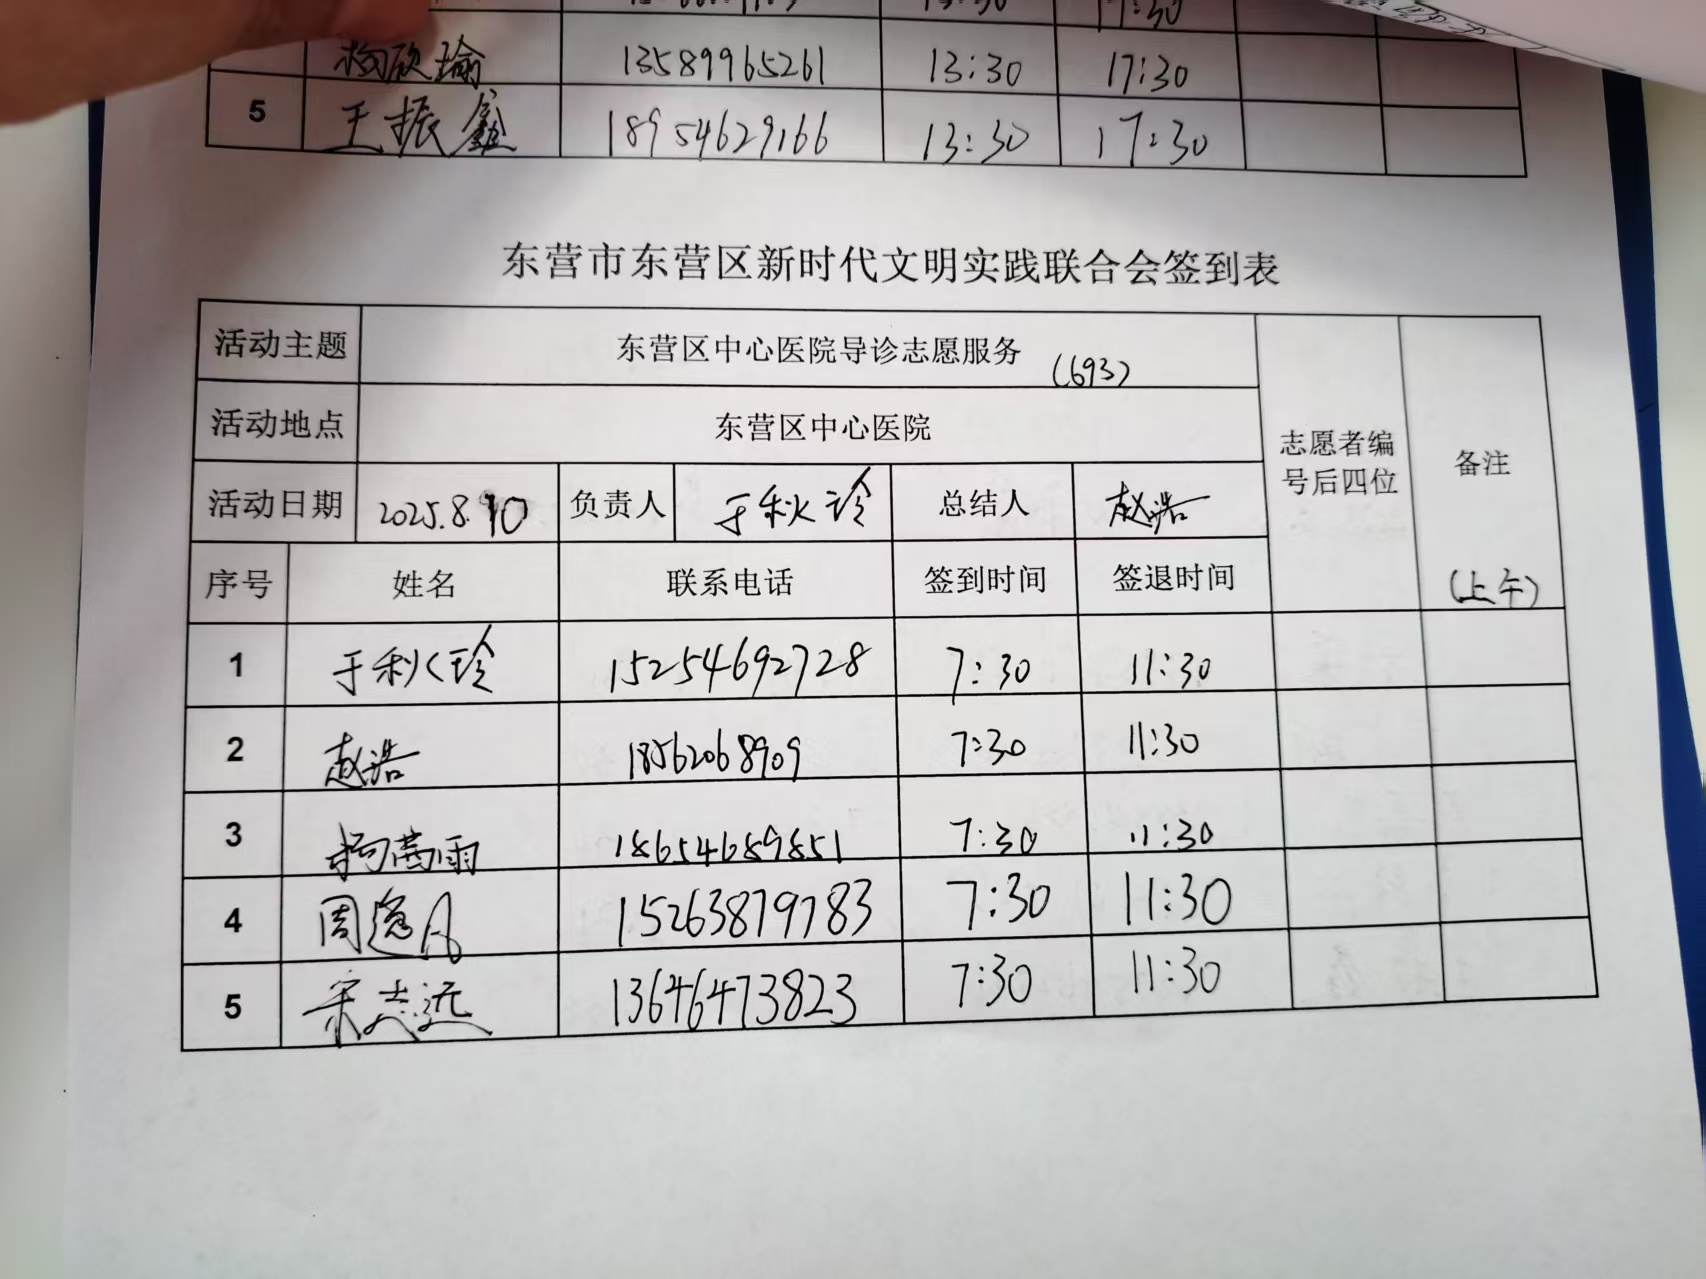 13:30 17:30
杨欣瑜 13589965261 13:30 17:30
5 王振鑫 18954629166 13:30 17:30
东营市东营区新时代文明实践联合会签到表
活动主题 东营区中心医院导诊志愿服务 (693)
活动地点 东营区中心医院
志愿者编号后四位
备注
(上午)
活动日期 2025.8.10 负责人 于秋玲 总结人 赵浩
序号 姓名 联系电话 签到时间 签退时间
1 于秋玲 15254692728 7:30 11:30
2 赵浩 18562068909 7:30 11:30
3 杨茜雨 18654689851 7:30 11:30
4 周逸凡 15263879783 7:30 11:30
5 宋志远 13646473823 7:30 11:30